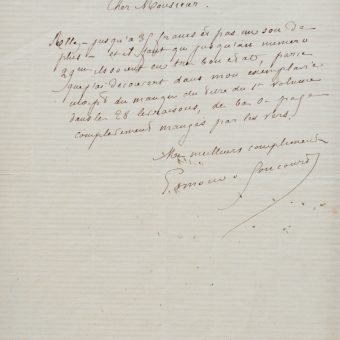 Cher Monsieur.
jusqu'à 35 francs et pas un sou de
plus et il faut que jusqu'au numéro
2 que soient en très bon état, parce
que j'ai découvert dans mon exemplaire
du manque du livre du 1er volume
dans les 28 livraisons, de bas de page
complètement mangés par les vers.
Mes meilleurs compliments
Edmond de Goncourt